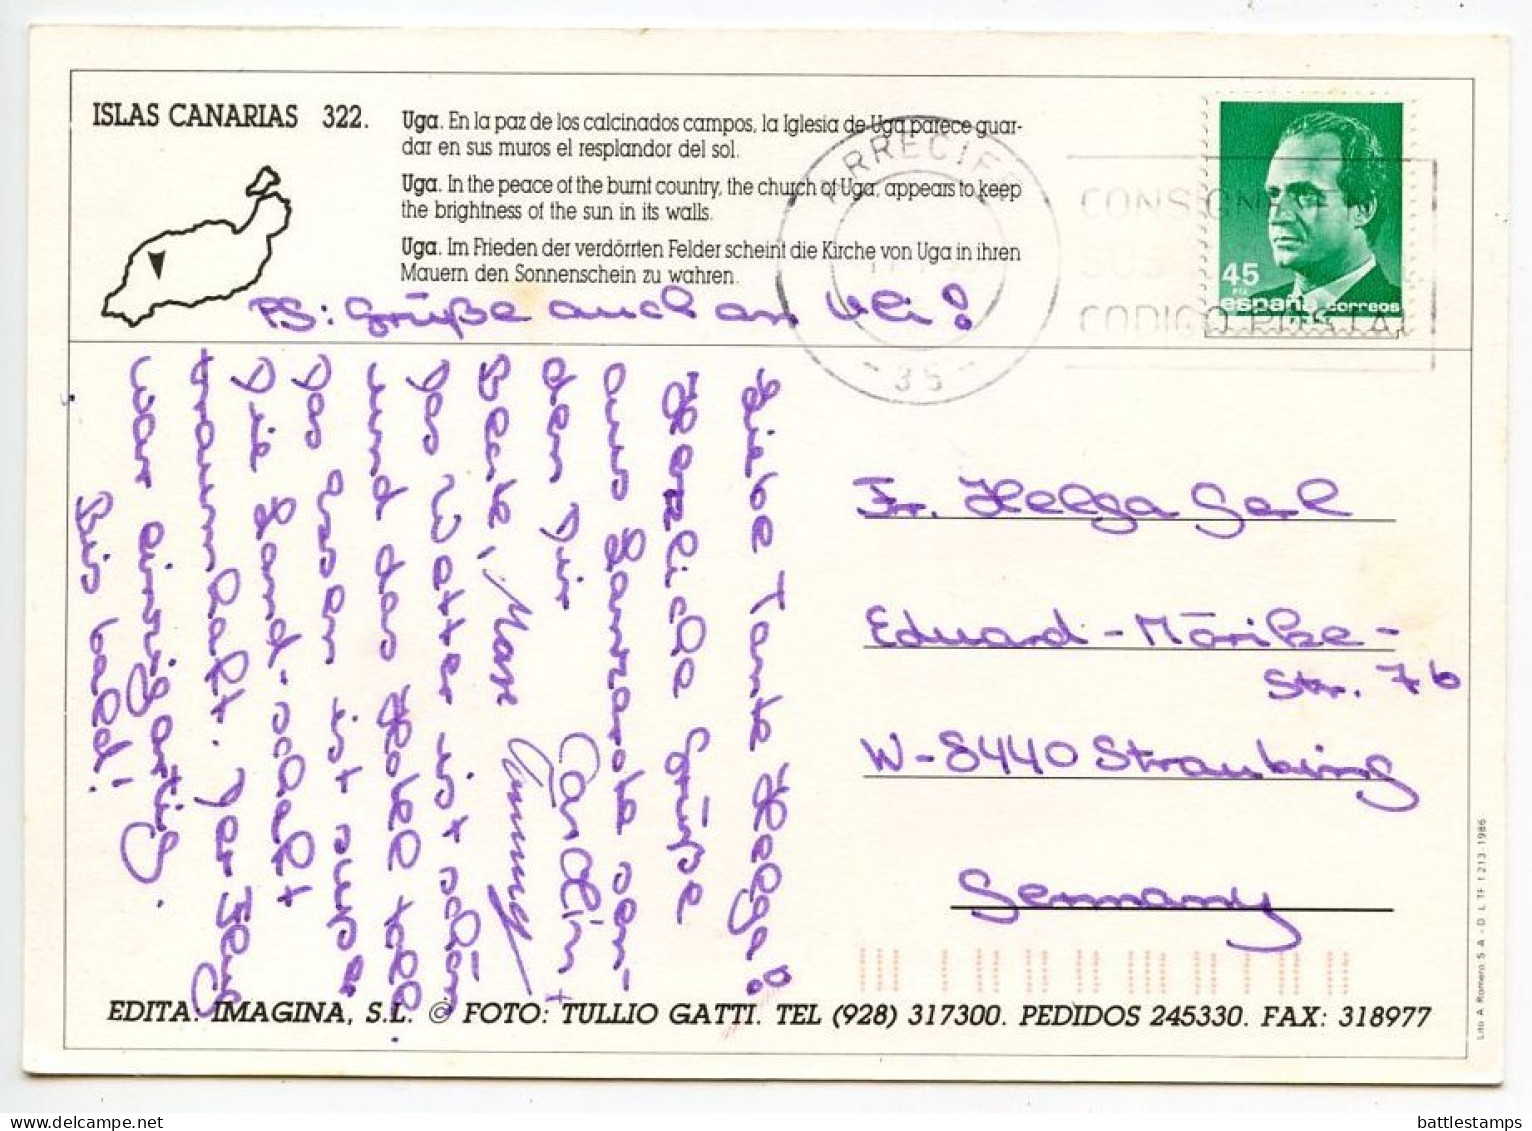 ISLAS CANARIAS 322.
Uga. En la paz de los calcinados campos, la Iglesia de Uga parece guar-
dar en sus muros el resplandor del sol.
Uga. In the peace of the burnt country, the church of Uga, appears to keep
the brightness of the sun in its walls.
Uga. Im Frieden der verdörrten Felder scheint die Kirche von Uga in ihren
Mauern den Sonnenschein zu wahren.
PS: Grüße auch an Uli!
ARRECIFE
- 35 -
CONSIGNE
CODIGO POSTAL
45
PTA
españa correos
Liebe Tante Helga!
Herzliche Grüße
aus Lanzarote sen-
den Dir
Carolin +
Beate,
Das Wetter ist schön
und das Hotel toll
Das Essen ist super
Die Land-schaft
traumhaft. Der Flug
war einzigartig.
Bis bald!
Fr. Helga Gerl
Eduard-Mörike-
Str. 7b
W-8440 Straubing
Germany
EDITA: IMAGINA, S.L. © FOTO: TULLIO GATTI. TEL (928) 317300. PEDIDOS 245330. FAX: 318977
Lito A. Romero S A - D L TF 1213 1986
battlestamps